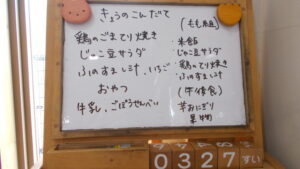 きょうのこんだて
鶏のごまてり焼き
じゃこ豆サラダ
ふのすまし汁、いちご
おやつ
牛乳、ごぼうせんべい
(もも組)
・米飯
・じゃこ豆サラダ
・鶏のてり焼き
・ふのすまし汁
(午後食)
芋おにぎり
果物
0327すい